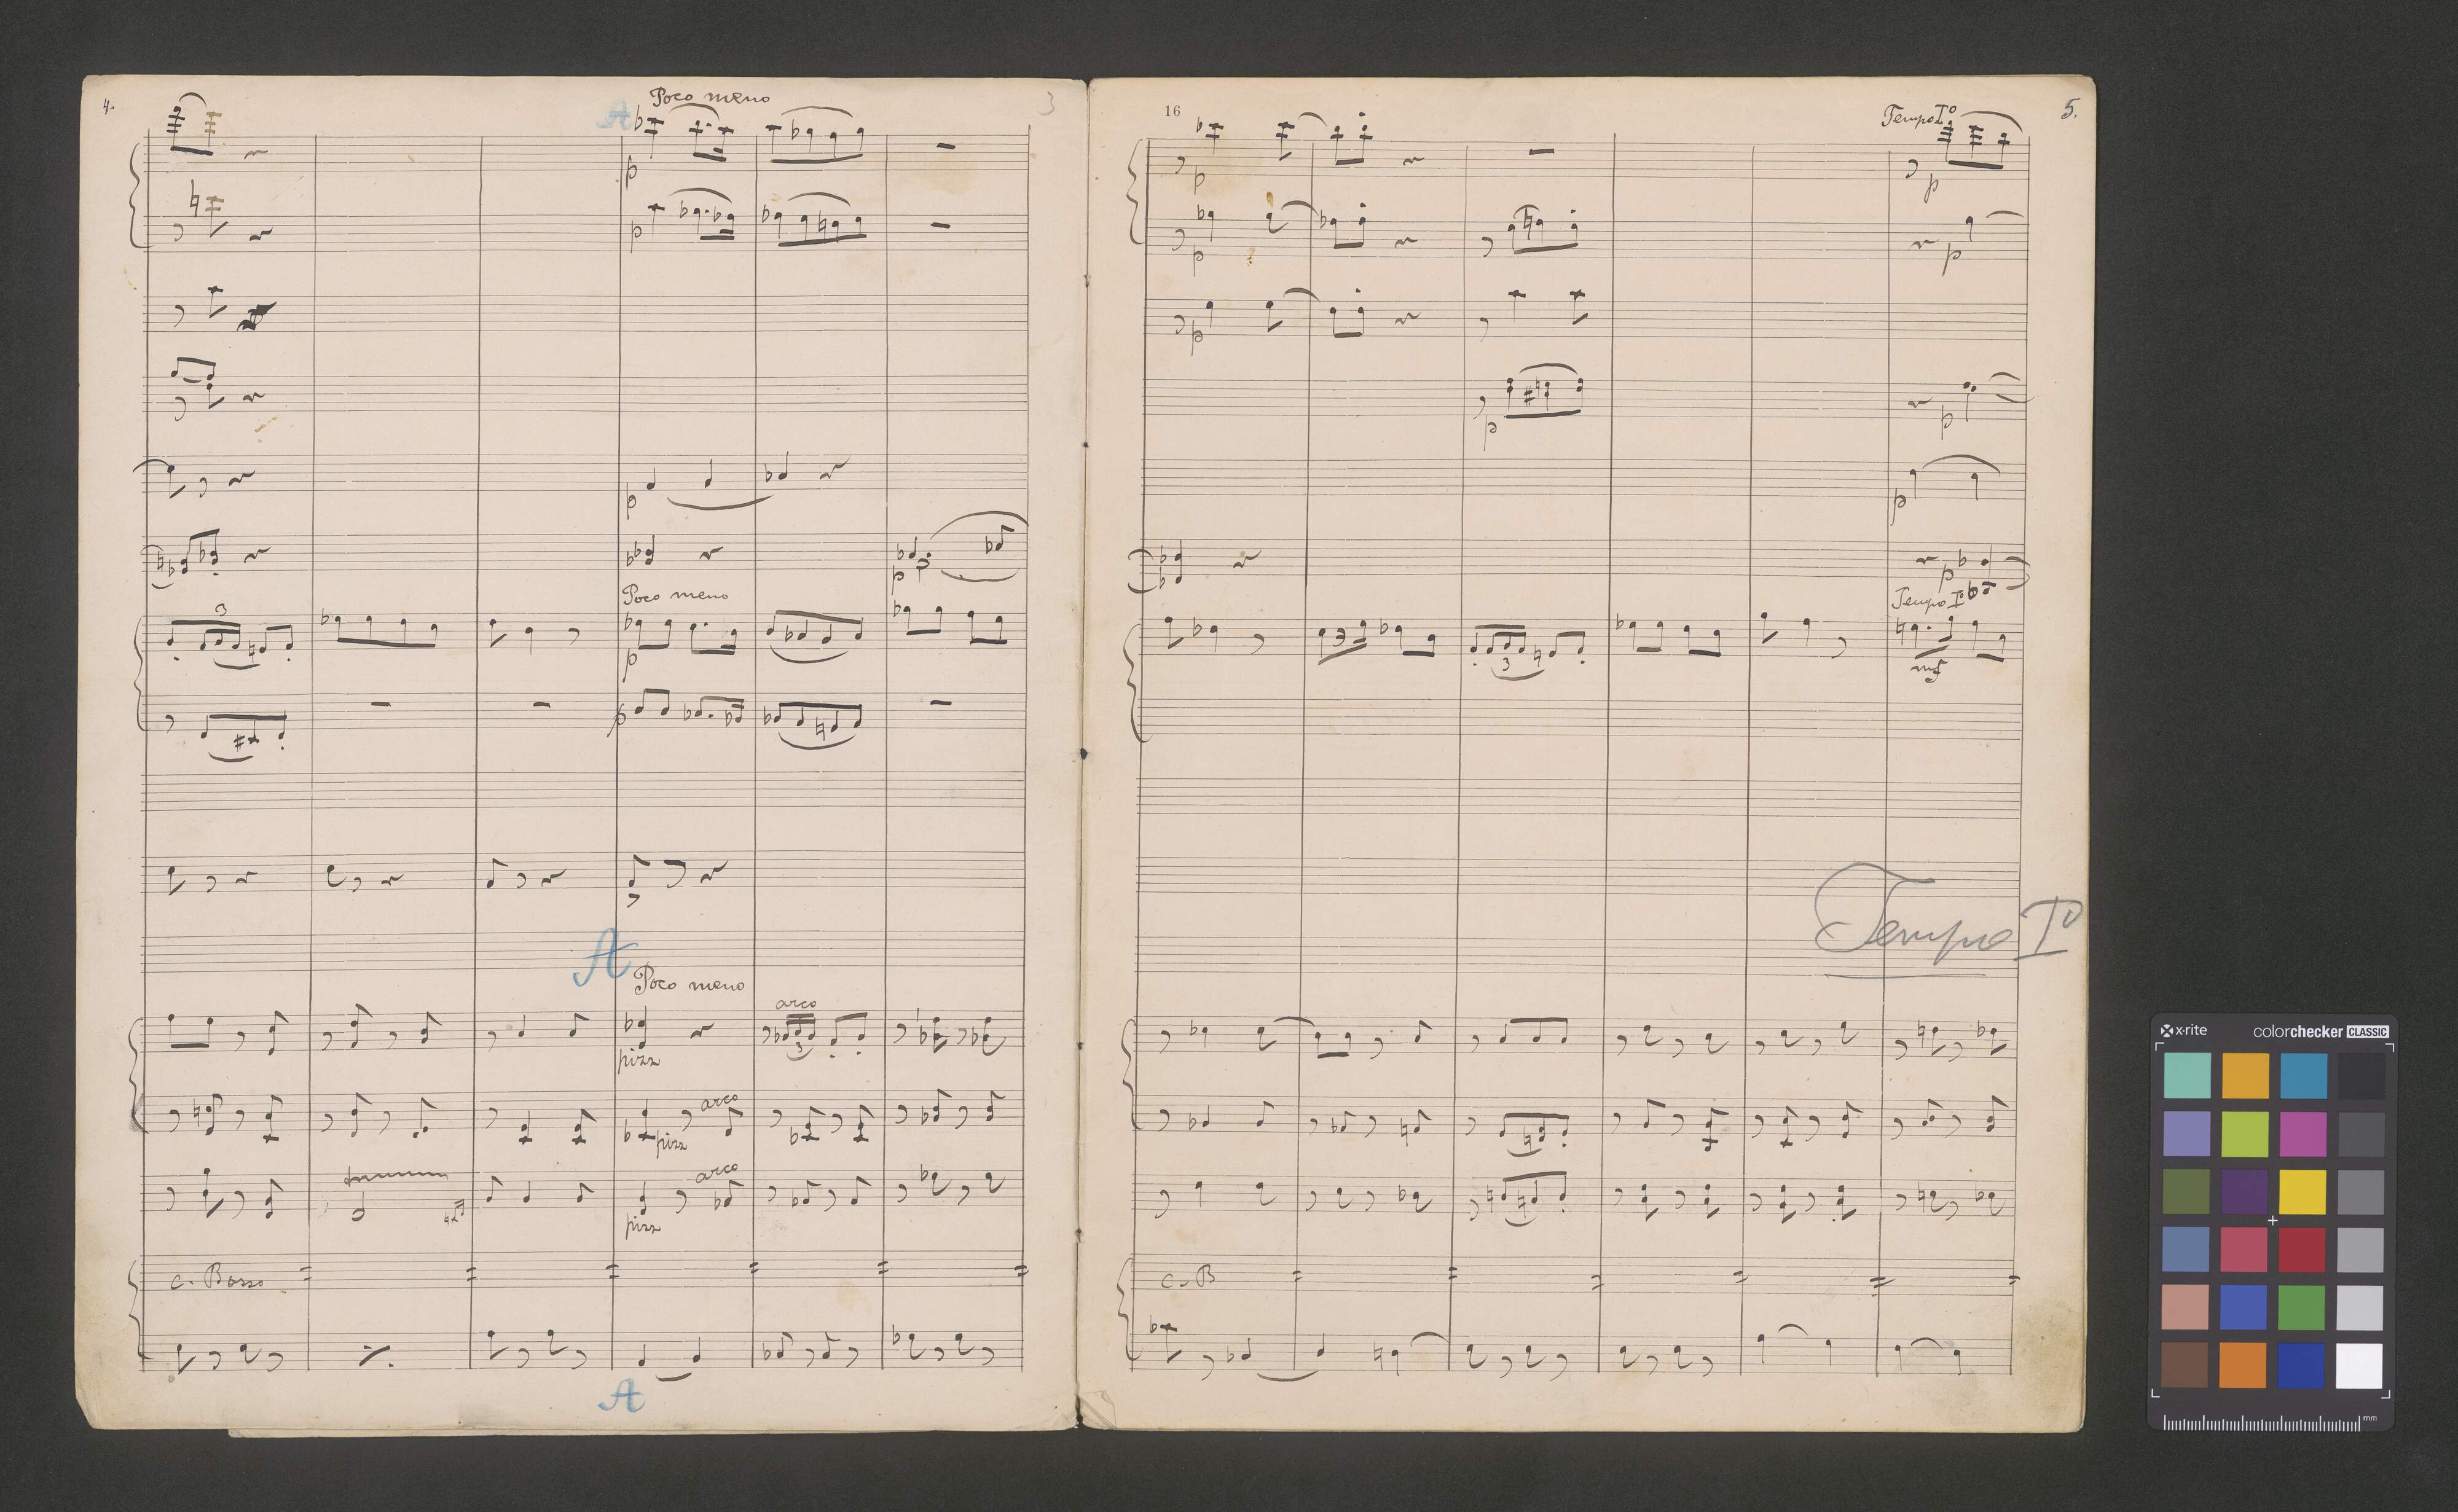 4.
Poco meno
A
3
p
p
p
3
Poco meno
p
p
p
A
Poco meno
arco
3
pizz
arco
pizz
arco
pizz
c. Basso
A
16
Tempo I°
5.
p
p
p
p
p
p
p
p
p
Tempo I°
3
mf
Tempo I°
c. B
x-rite
colorchecker CLASSIC
mm